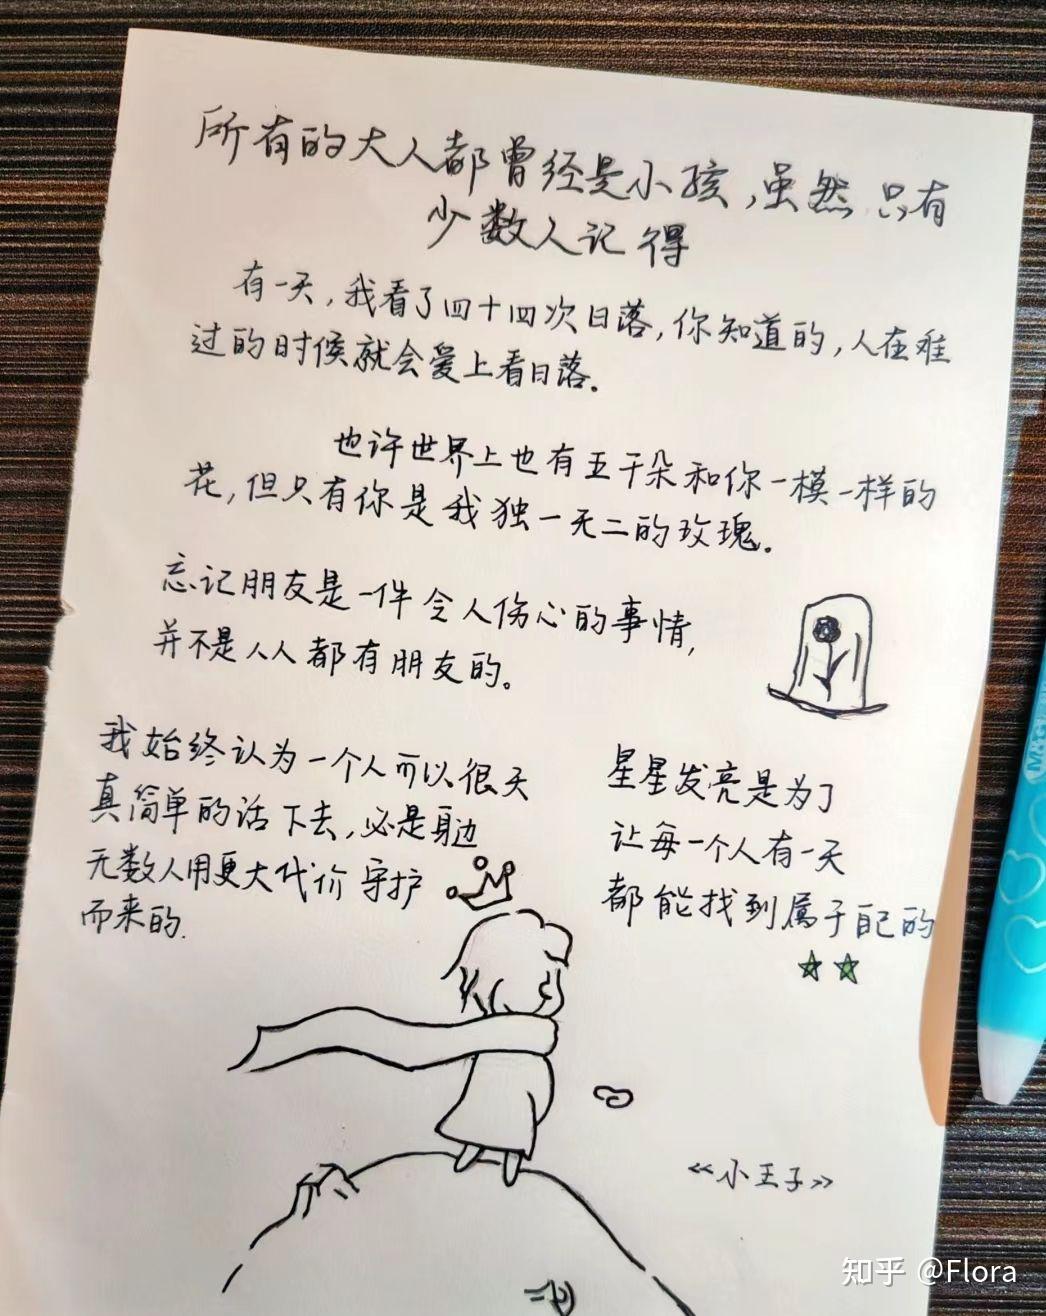 所有的大人都曾经是小孩，虽然只有
少数人记得
有一天，我看了四十四次日落，你知道的，人在难
过的时候就会爱上看日落。
也许世界上也有五千朵和你一模一样的
花，但只有你是我独一无二的玫瑰。
忘记朋友是一件令人伤心的事情，
并不是人人都有朋友的。
我始终认为一个人可以很天
真简单的活下去，必是身边
无数人用更大代价守护
而来的.
星星发亮是为了
让每一个人有一天
都能找到属于自己的
☆☆
《小王子》
M&G
知乎 @Flora